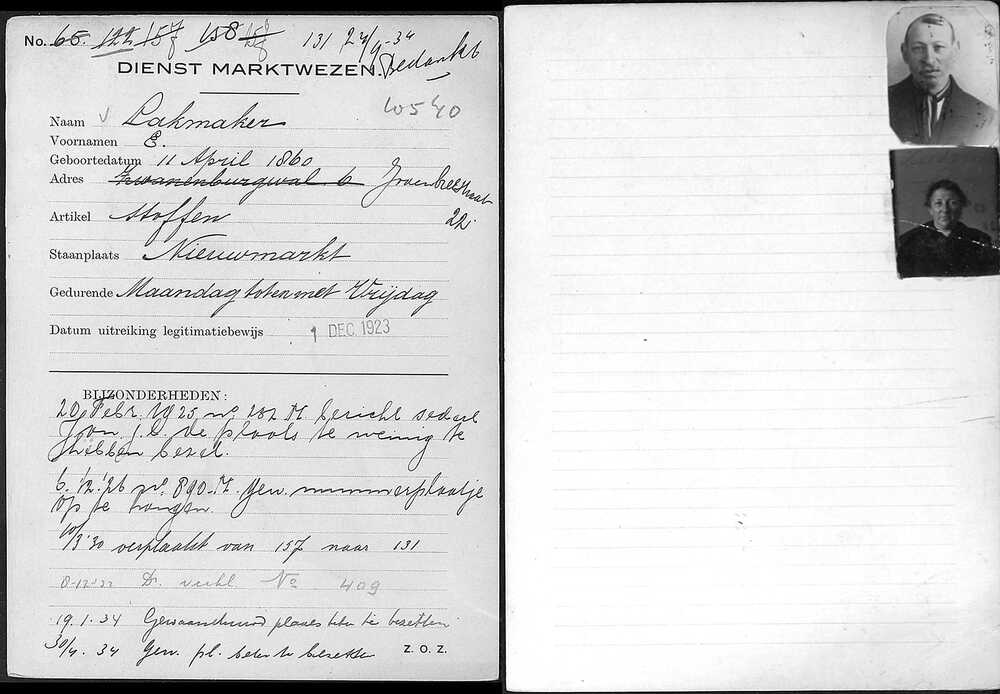 No. 65. 122 157 158 157 131 24/9-34
Bedankt
DIENST MARKTWEZEN.
10540
Naam V Lakmaker
Voornamen E.
Geboortedatum 11 April 1860
Adres Zwanenburgwal 6 Jodenbreestraat
22
Artikel Stoffen
Staanplaats Nieuwmarkt
Gedurende Maandag tot en met Vrijdag
Datum uitreiking legitimatiebewijs 1 DEC. 1923
BIJZONDERHEDEN:
20 Febr. 1925 no. 282 M. bericht sedert
Jan. j.l. de plaats te weinig te
hebben bezet.
6.12.'26 no. 890 M. Gew. nummerplaatje
op te hangen.
10/3 '30 verplaatst van 157 naar 131
No 409
19.1.34 Gewaarschuwd plaats beter te bezetten
30/4.34 Gew. pl. beter te bezetten
Z.O.Z.